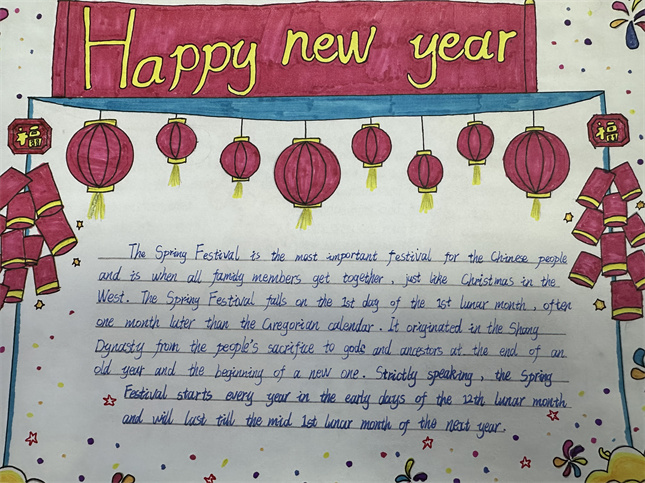 Happy new year
福
福
The Spring Festival is the most important festival for the Chinese people
and is when all family members get together, just like Christmas in the
West. The Spring Festival falls on the 1st day of the 1st lunar month, often
one month later than the Gregorian calendar. It originated in the Shang
Dynasty from the people's sacrifice to gods and ancestors at the end of an
old year and the beginning of a new one. Strictly speaking, the Spring
Festival starts every year in the early days of the 12th lunar month
and will last till the mid 1st lunar month of the next year.